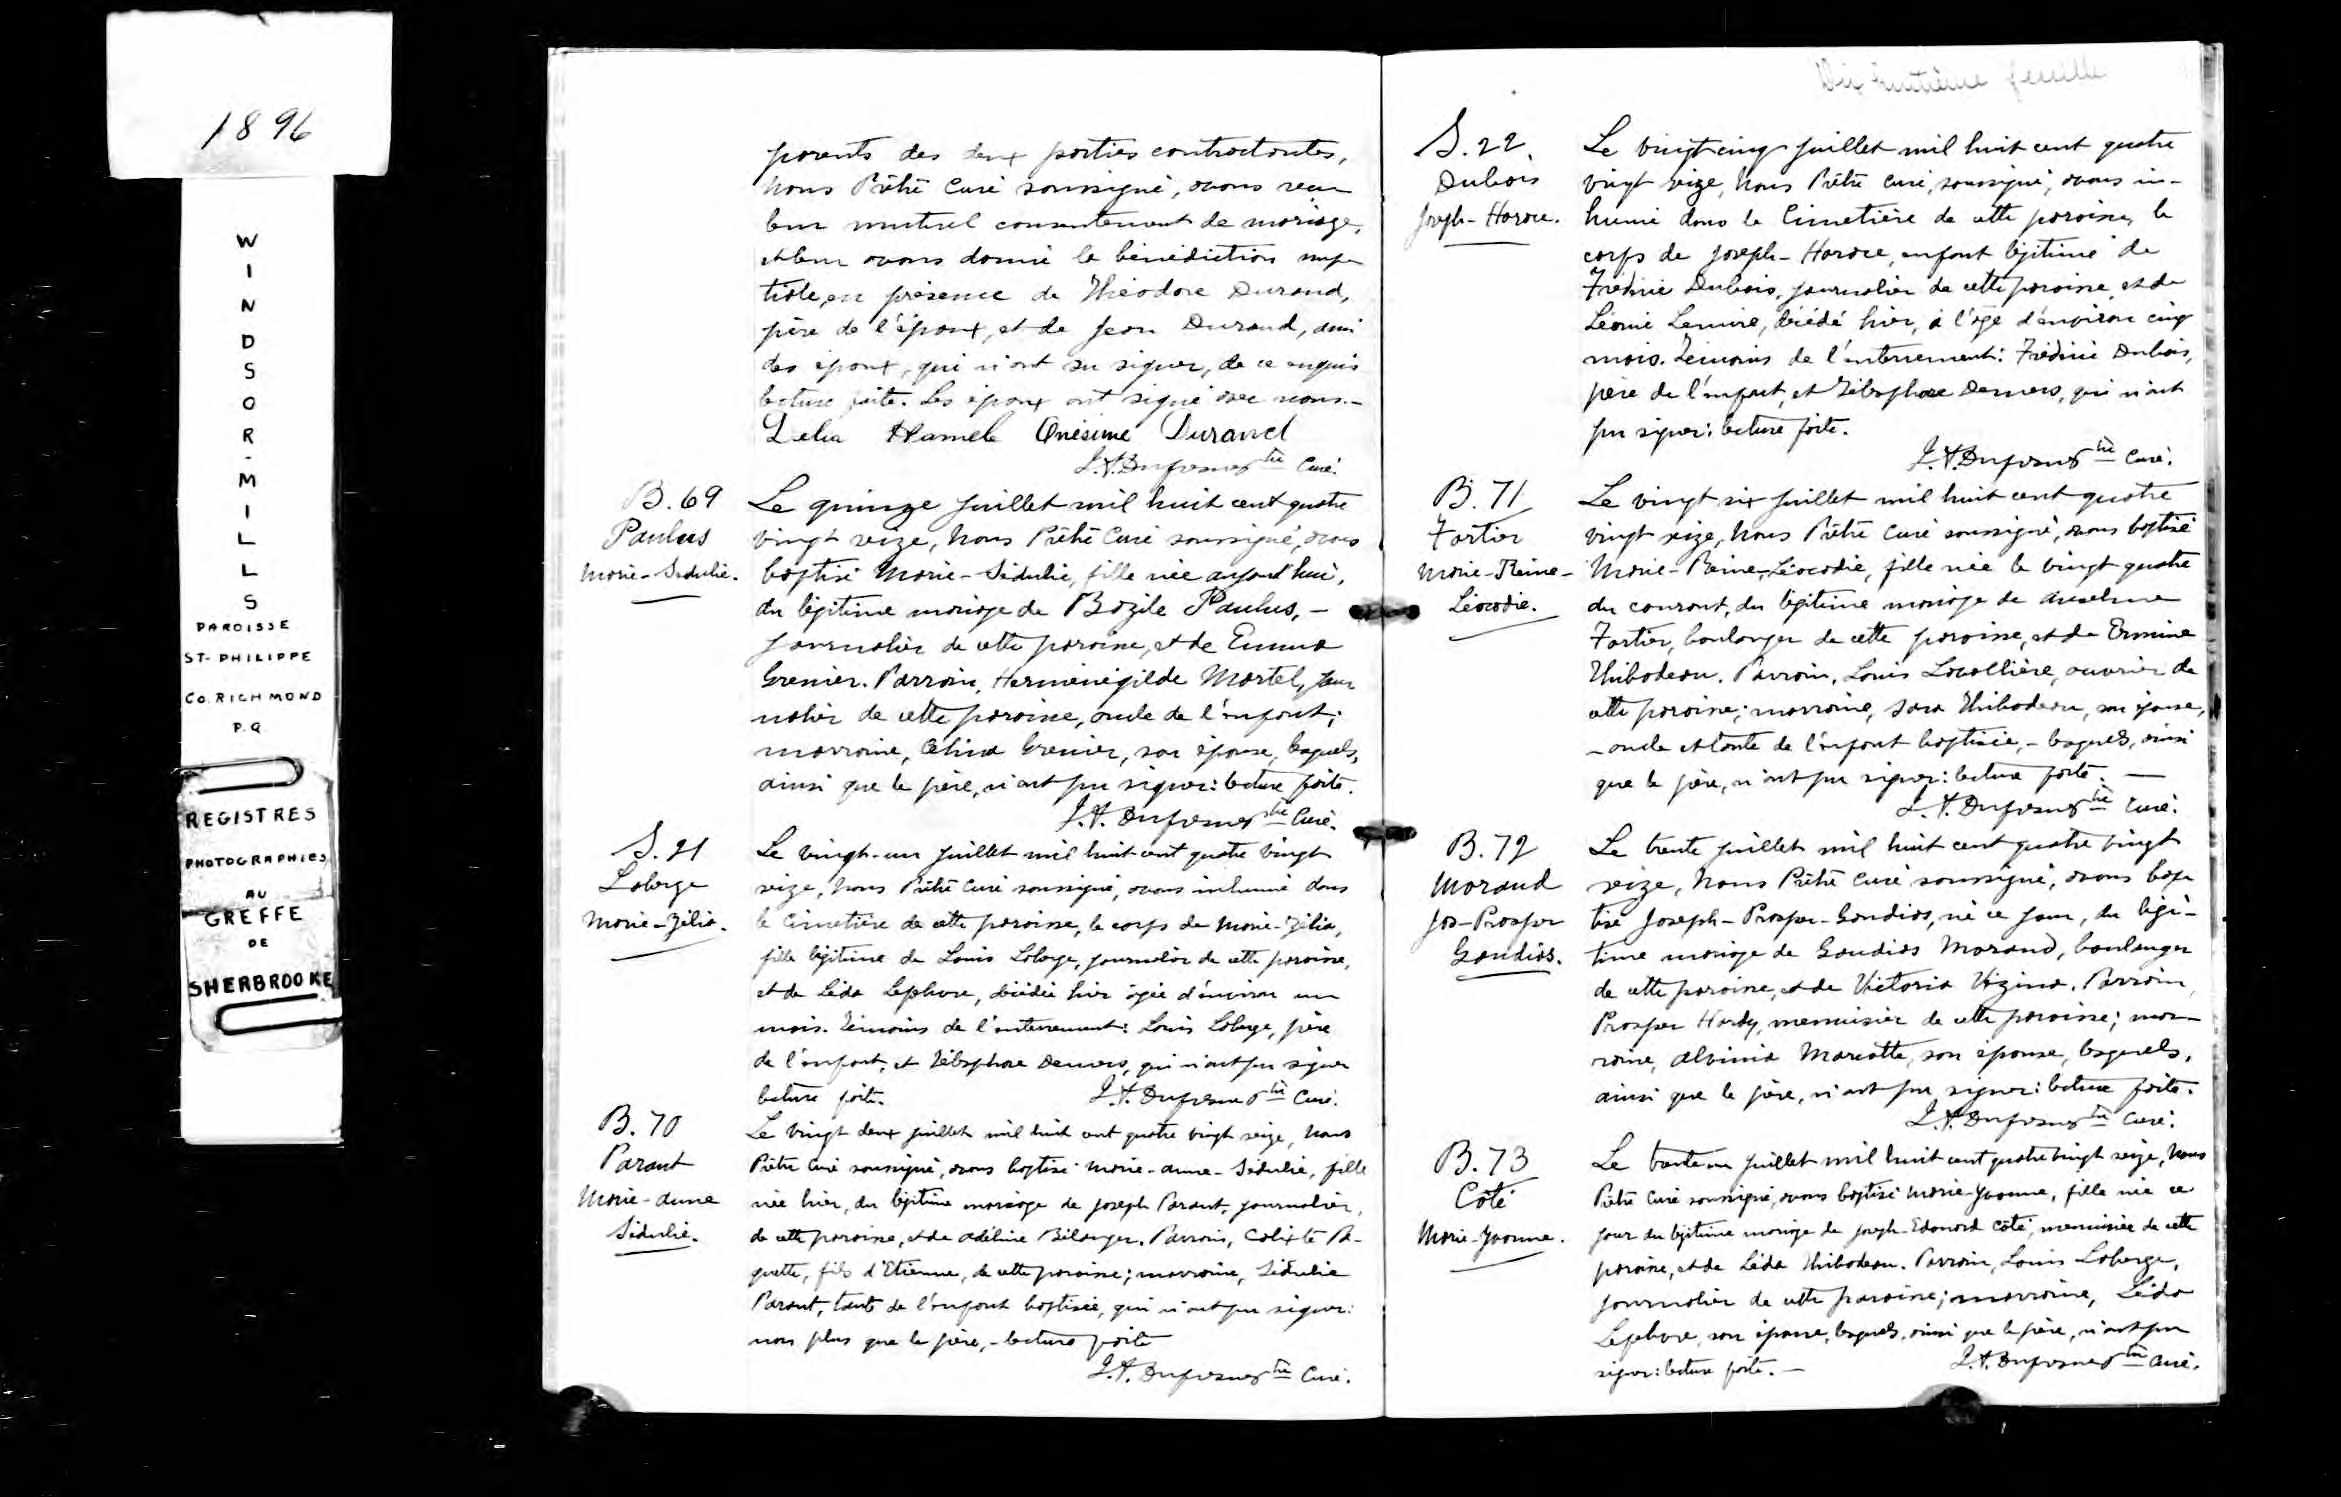 1896
WINDSOR-MILLS
PAROISSE
ST-PHILIPPE
CO. RICHMOND
P.Q.
REGISTRES
PHOTOGRAPHIES
AU
GREFFE
DE
SHERBROOKE
parents des deux parties contractantes,
Nous Prêtre Curé soussigné, avons reçu
leur mutuel consentement de mariage,
et leur avons donné la bénédiction nup
tiale, en présence de Théodore Durand,
père de l'époux, et de Jean Durand, ami
des époux, qui n'ont su signer, de ce enquis
lecture faite. Les époux ont signé avec nous.-
Délia Hamel Onésime Durand
J.A. Dufresne ptre Curé.
B. 69
Paulus
Marie-Sédulie.
Le quinze juillet mil huit cent quatre
vingt seize, Nous Prêtre Curé soussigné, avons
baptisé Marie-Sédulie, fille née aujourd'hui,
du légitime mariage de Bazile Paulus, -
journalier de cette paroisse, et de Emma
Grenier. Parrain, Herménégilde Martel, jour
nalier de cette paroisse, oncle de l'enfant;
marraine, Célina Grenier, son épouse, lesquels,
ainsi que le père, n'ont pu signer: lecture faite.
J.A. Dufresne ptre Curé.
S. 21
Laberge
Marie-Zélia.
Le vingt-un juillet mil huit cent quatre vingt
seize, Nous Prêtre Curé soussigné, avons inhumé dans
le Cimetière de cette paroisse, le corps de Marie-Zélia,
fille légitime de Louis Laberge, journalier de cette paroisse,
et de Léda Lefebvre, décédée hier âgée d'environ un
mois. Témoins de l'enterrement: Louis Laberge, père
de l'enfant, et Télesphore Demers, qui n'ont pu signer
lecture faite. J.A. Dufresne ptre Curé.
B. 70
Parant
Marie-Anne
Sédulie.
Le vingt deux juillet mil huit cent quatre vingt seize, Nous
Prêtre Curé soussigné, avons baptisé Marie-Anne-Sédulie, fille
née hier, du légitime mariage de Joseph Parant, journalier,
de cette paroisse, et de Adéline Bélanger. Parrain, Calixte Pa-
quette, fils d'Etienne, de cette paroisse; marraine, Sédulie
Parant, tante de l'enfant baptisée, qui n'ont pu signer:
non plus que le père, - lecture faite
J.A. Dufresne ptre Curé.
Dix huitième feuille
S. 22.
Dubois
Joseph-Horace.
Le vingt cinq juillet mil huit cent quatre
vingt seize, Nous Prêtre Curé, soussigné, avons in-
humé dans le Cimetière de cette paroisse, le
corps de Joseph-Horace, enfant légitime de
Frédéric Dubois, journalier de cette paroisse, et de
Léonie Lemire, décédé hier, à l'âge d'environ cinq
mois. Témoins de l'enterrement: Frédéric Dubois,
père de l'enfant, et Télesphore Demers, qui n'ont
pu signer: lecture faite.
J.A. Dufresne ptre Curé.
B. 71
Fortier
Marie-Reine-
Léocadie.
Le vingt six juillet mil huit cent quatre
vingt seize, Nous Prêtre Curé soussigné, avons baptisé
Marie-Reine-Léocadie, fille née le vingt quatre
du courant, du légitime mariage de Anselme
Fortier, boulanger de cette paroisse, et de Ermine
Thibodeau. Parrain, Louis Lavallière, ouvrier de
cette paroisse; marraine, Sara Thibodeau, son épouse,
- oncle et tante de l'enfant baptisée, - lesquels, ainsi
que le père, n'ont pu signer: lecture faite. —
J.A. Dufresne ptre Curé.
B. 72
Morand
Jos-Prosper
Gaudias.
Le trente juillet mil huit cent quatre vingt
seize, Nous Prêtre Curé soussigné, avons bap
tisé Joseph-Prosper-Gaudias, né ce jour, du légi-
time mariage de Gaudias Morand, boulanger
de cette paroisse, et de Victoria Vézina. Parrain,
Prosper Hardy, menuisier de cette paroisse; mar-
raine, Alvinia Marcotte, son épouse, lesquels,
ainsi que le père, n'ont pu signer: lecture faite.
J.A. Dufresne ptre Curé.
B. 73
Côté
Marie-Yvonne.
Le trente un juillet mil huit cent quatre vingt seize, Nous
Prêtre Curé soussigné, avons baptisé Marie-Yvonne, fille née ce
jour du légitime mariage de Joseph-Edouard Côté, menuisier de cette
paroisse, et de Léda Thibodeau. Parrain, Louis Laberge,
journalier de cette paroisse; marraine, Léda
Lefebvre, son épouse, lesquels, ainsi que le père, n'ont pu
signer: lecture faite. — J.A. Dufresne ptre Curé.